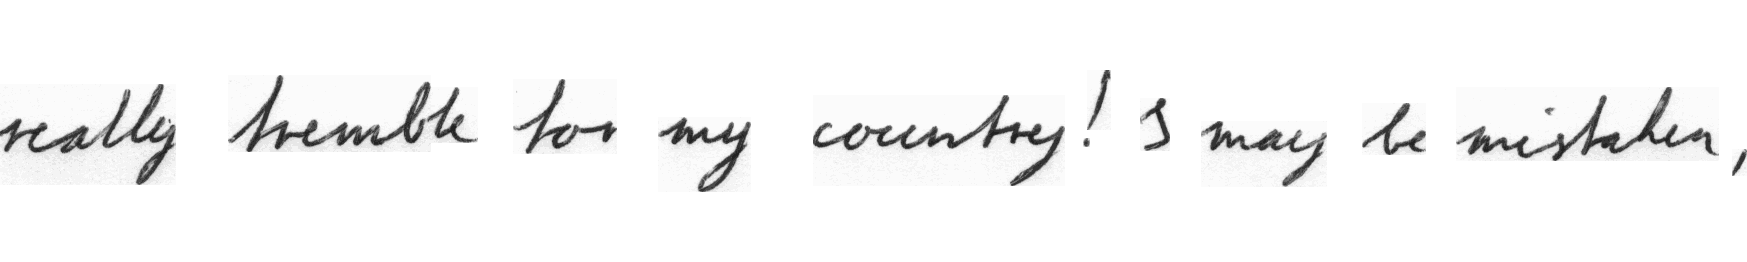 really tremble for my country! I may be mistaken,